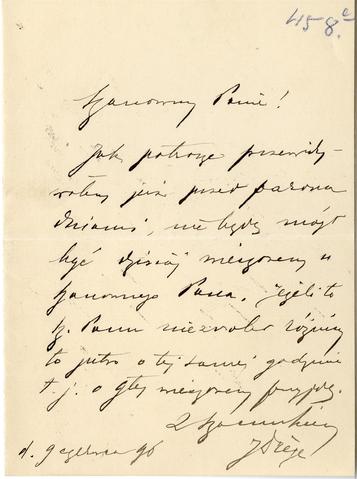 458.e
Szanowny Panie!
Jak patrzę przewidy-
wałem już przed paroma
dniami, nie będę mógł
być dzisiaj wieczorem u
Szanownego Pana. Jeżeli to
Sz. Panu nie zrobi różnicy
to jutro o tej samej godzinie
t. j. o 9tej wieczorem przyjdę.
Z szacunkiem
d. 9 czerwca 96